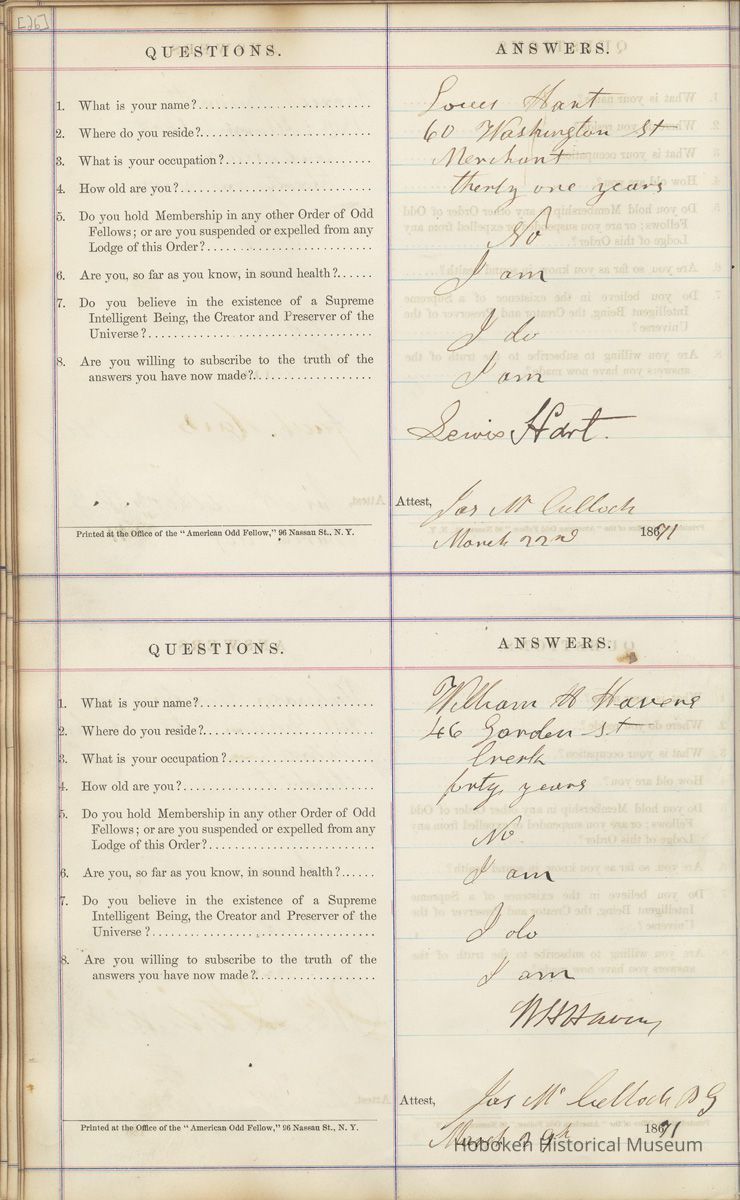 [26]
QUESTIONS.
ANSWERS.
1. What is your name?
Louis Hart
2. Where do you reside?
60 Washington St
3. What is your occupation?
Merchant
4. How old are you?
therty one years
5. Do you hold Membership in any other Order of Odd
Fellows; or are you suspended or expelled from any
Lodge of this Order?
No
6. Are you, so far as you know, in sound health?
I am
7. Do you believe in the existence of a Supreme
Intelligent Being, the Creator and Preserver of the
Universe?
I do
8. Are you willing to subscribe to the truth of the
answers you have now made?
I am
Lewis Hart.
Attest, Jas McCulloch
Printed at the Office of the "American Odd Fellow," 96 Nassau St., N. Y.
March 22nd 1871
QUESTIONS.
ANSWERS.
1. What is your name?
William H Havens
2. Where do you reside?
46 Garden St
3. What is your occupation?
Clerk
4. How old are you?
forty years
5. Do you hold Membership in any other Order of Odd
Fellows; or are you suspended or expelled from any
Lodge of this Order?
No
6. Are you, so far as you know, in sound health?
I am
7. Do you believe in the existence of a Supreme
Intelligent Being, the Creator and Preserver of the
Universe?
I do
8. Are you willing to subscribe to the truth of the
answers you have now made?
I am
WH Havens
Attest, Jas McCulloch
Printed at the Office of the "American Odd Fellow," 96 Nassau St., N. Y.
March 29th 1871
Hoboken Historical Museum